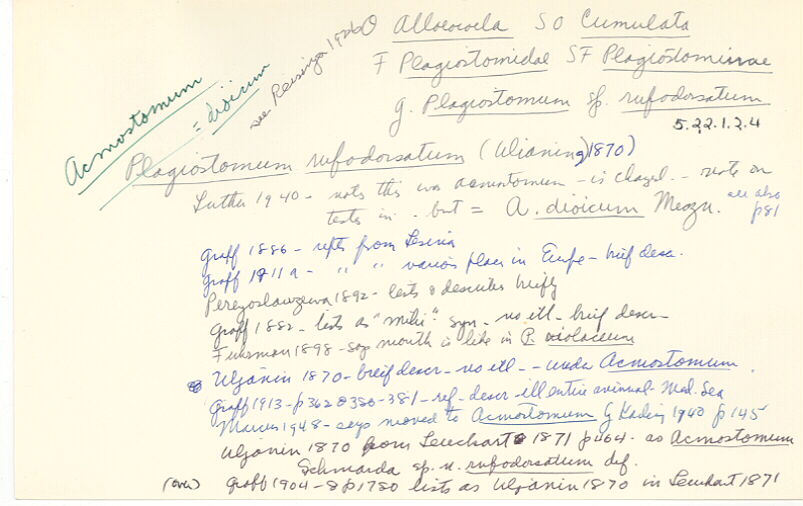 O Alloeocoela SO Cumulata
F Plagiostomidae SF Plagiostominae
g. Plagiostomum sp. rufodorsatum
5.22.1.2.4
see Reisinger 1926
Acmostomum
= dioicum
Plagiostomum rufodorsatum (Ulianin, 1870)
Luther 1940 - notes this was acmostomum - is - note on
testes in . but = A. dioicum
see also
p81
Graff 1886 - repts from Lesina
Graff 1911a - " " various places in Europe - brief desc.
Pereyaslawzewa 1892 - lists & describes briefly
Graff 1882 - lists as " " syn - no ill - brief descr -
Fuhrman 1898 - says mouth is like in P. violaceum
Uljanin 1870 - breif descr - no ill - - under Acmostomum.
Graff 1913 - p362 & 380-381 - ref - descr - ill entire animal - Med. Sea
Marcus 1948 - says moved to Acmostomum by 1940 p145
Uljanin 1870 from Leuckart 1871 p464 - as Acmostomum
Schmarda sp. n. rufodorsatum def.
(over) Graff 1904-8 p1730 lists as Uljanin 1870 in Leuckart 1871